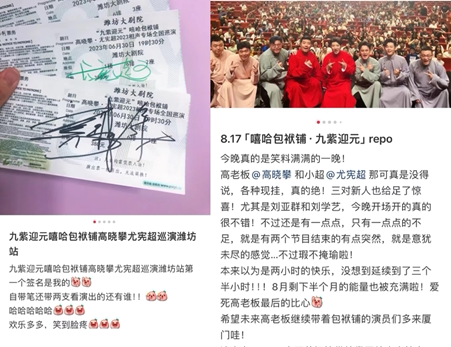 潍坊大剧院
"九紫迎元"嘻哈包袱铺
高晓攀·尤宪超2023相声专场全国巡演
2023年06月30日 19时30分
潍坊大剧院
九紫迎元嘻哈包袱铺高晓攀尤宪超巡演潍坊
站
九紫迎元嘻哈包袱铺高晓攀尤宪超巡演潍坊站第
一个签名是我的
自带笔还带两支看演出的还有谁!!
哈哈哈哈哈
欢乐多多、笑到脸疼
8.17「嘻哈包袱铺·九紫迎元」repo
今晚真的是笑料满满的一晚!
高老板@高晓攀 和小超@尤宪超 那可真是没得
说,各种现挂,真的绝!三对新人也给足了惊
喜!尤其是刘亚群和刘学艺,今晚开场开的真
的很不错!不过还是有一点点,只有一点点的不
足,就是有两个节目结束的有点突然,就是意犹
未尽的感觉...不过瑕不掩瑜啦!
本来以为是两小时的快乐,没想到延续到了三个
半小时!!!8月剩下半个月的能量也被充满啦!爱
死高老板最后的比心
希望未来高老板继续带着包袱铺的演员们多来厦
门哇!